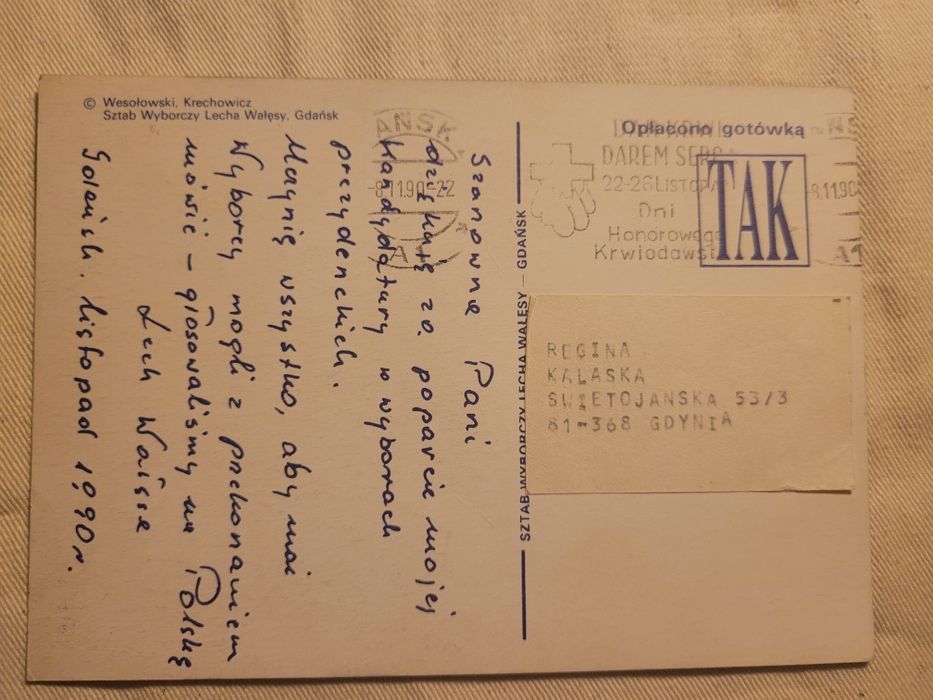 © Wesołowski, Krechowicz
Sztab Wyborczy Lecha Wałęsy, Gdańsk
Szanowna Pani
dziękuję za poparcie mojej
kandydatury w wyborach
prezydenckich.
Uczynię wszystko, aby moi
Wyborcy mogli z przekonaniem
mówić – głosowaliśmy na Polskę
Lech Wałęsa
Gdańsk. listopad 1990 r.
SZTAB WYBORCZY LECHA WAŁĘSY – GDAŃSK
Opłacono gotówką
TAK
DAREM SERCA
22-26 LISTOPAD
Dni
Honorowego
Krwiodawst
-8.11.90-22
-8.11.90
REGINA
KALASKA
SWIETOJANSKA 53/3
81-368 GDYNIA